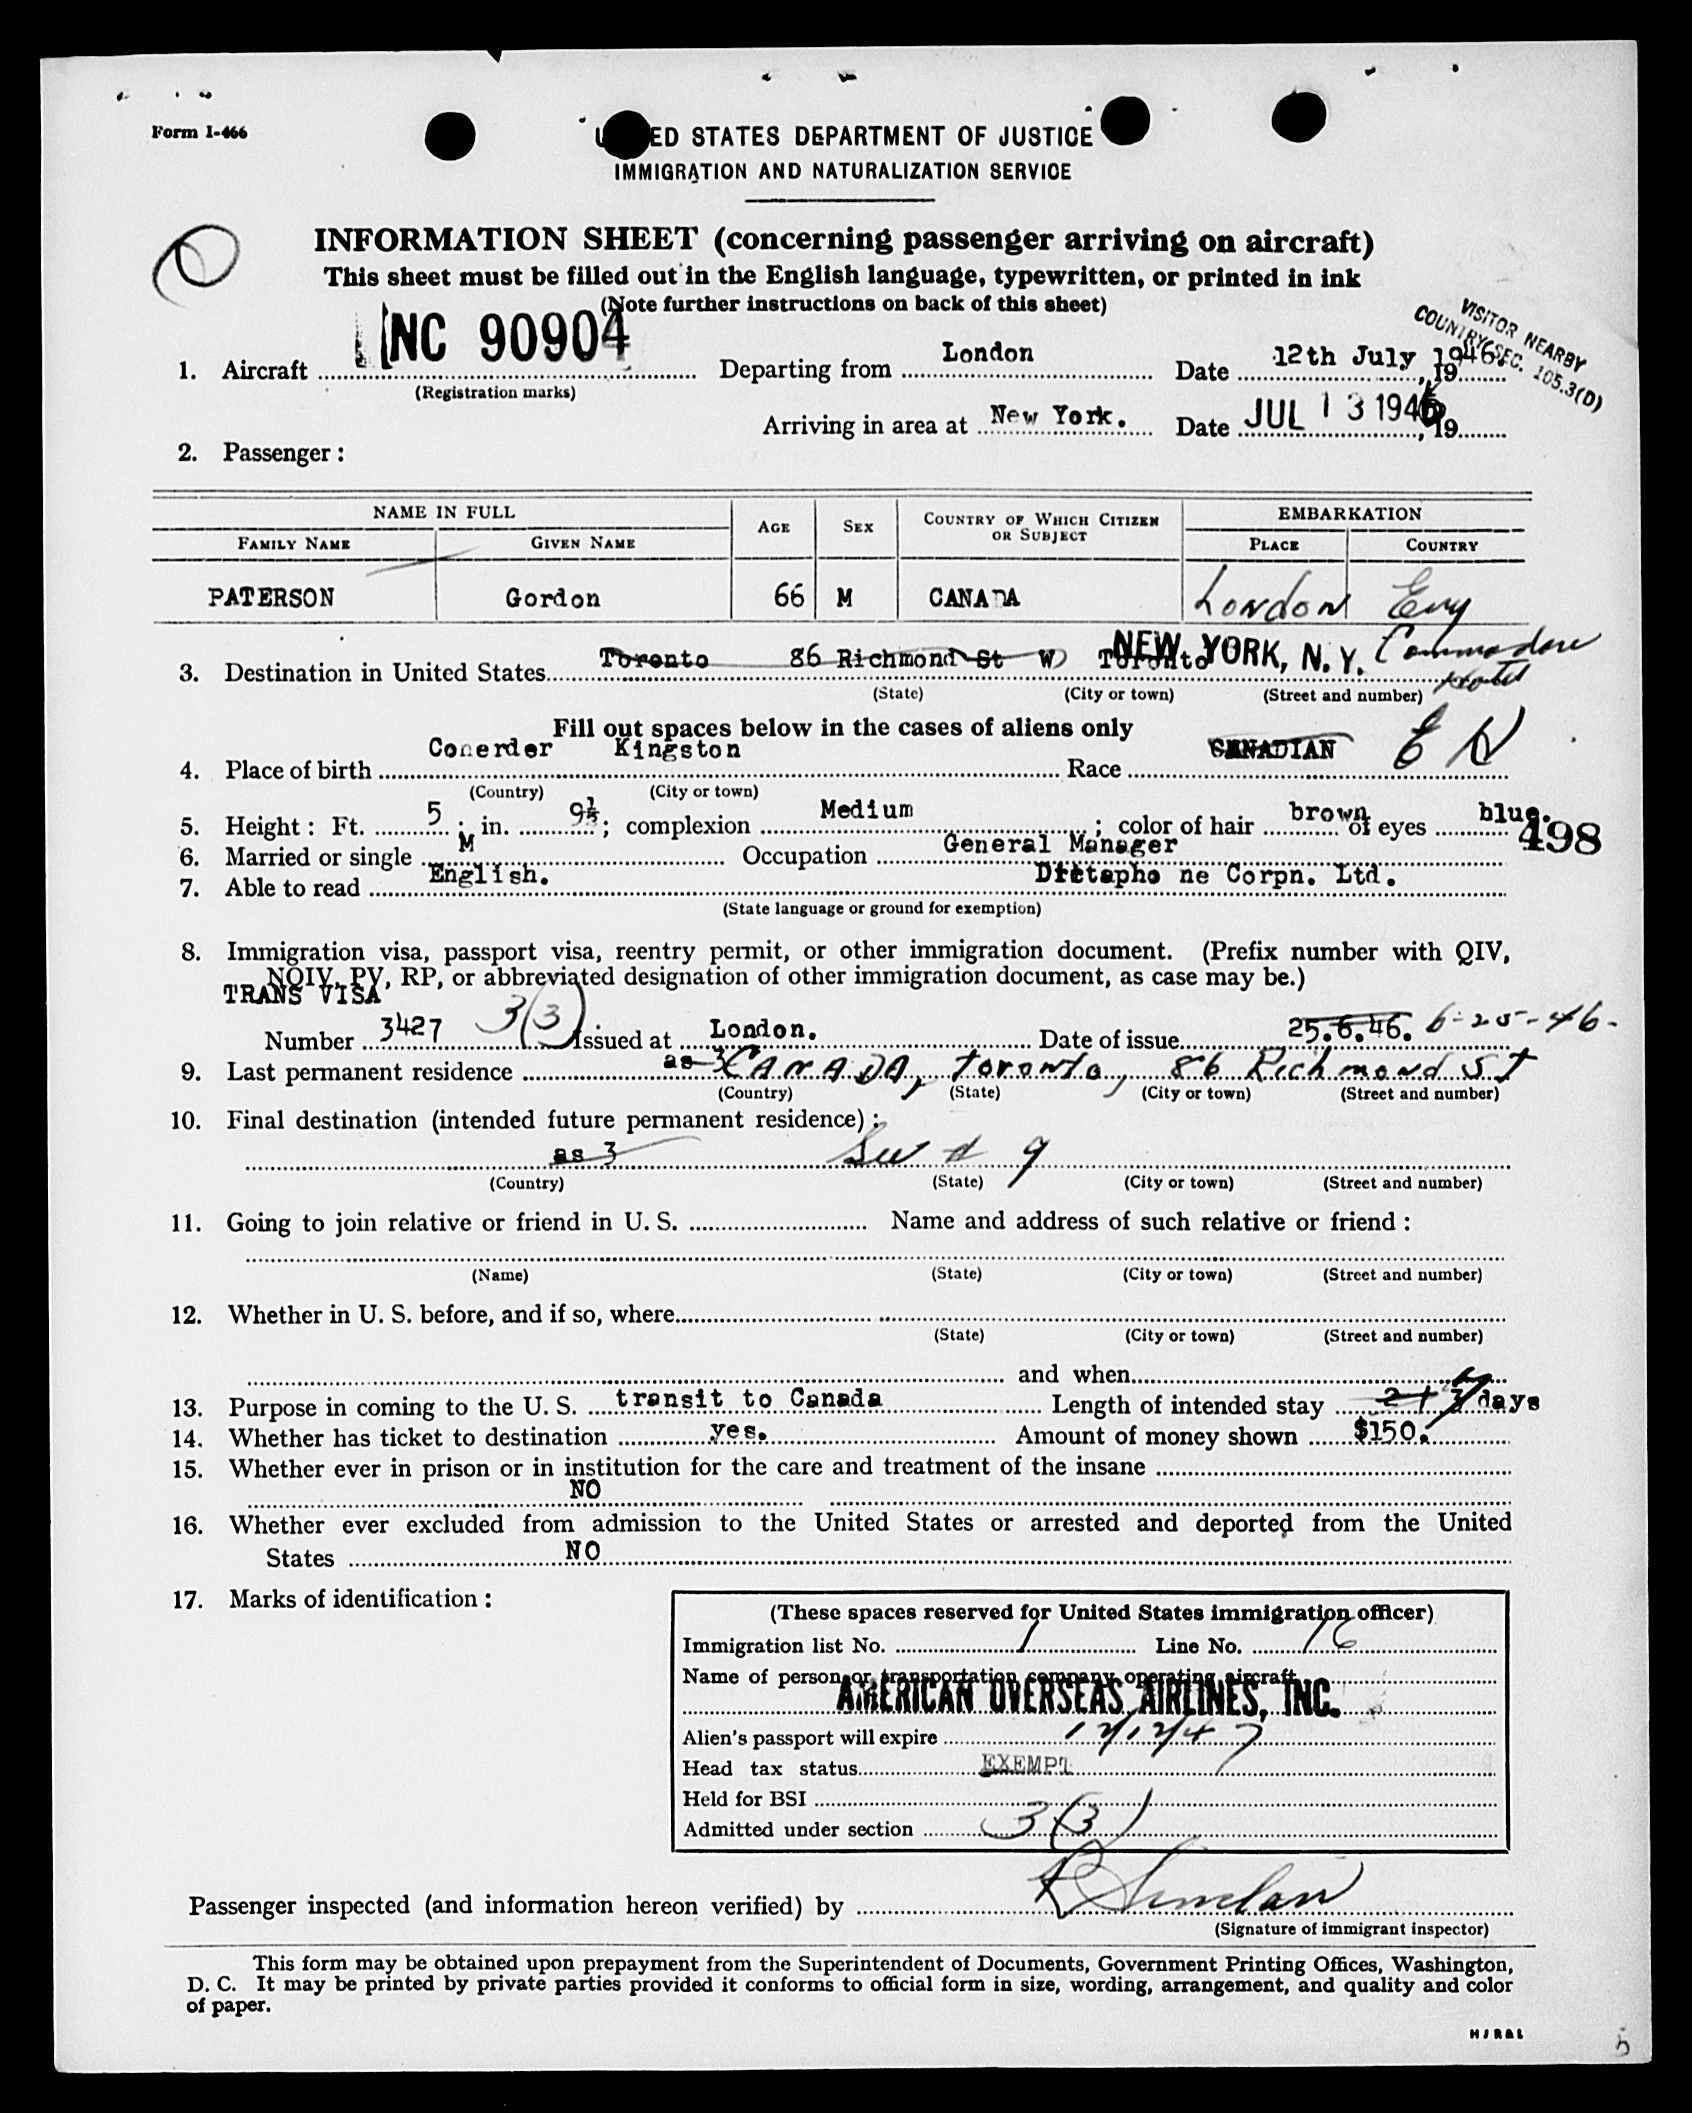 Form I-466
ED STATES DEPARTMENT OF JUSTICE
IMMIGRATION AND NATURALIZATION SERVICE
INFORMATION SHEET (concerning passenger arriving on aircraft)
This sheet must be filled out in the English language, typewritten, or printed in ink
(Note further instructions on back of this sheet)
VISITOR NEARBY
COUNTRY SEC. 105.3(D)
1. Aircraft NC 90904 Departing from London Date 12th July, 1946. 19
(Registration marks)
Arriving in area at New York. Date JUL 13 1946, 19
2. Passenger:
NAME IN FULL AGE SEX COUNTRY OF WHICH CITIZEN OR SUBJECT EMBARKATION
FAMILY NAME GIVEN NAME PLACE COUNTRY
PATERSON Gordon 66 M CANADA London Eng
3. Destination in United States Toronto 86 Richmond St W Toronto NEW YORK, N.Y. Commodore Hotel
(State) (City or town) (Street and number)
Fill out spaces below in the cases of aliens only
4. Place of birth Conerder Kingston Race CANADIAN E N
(Country) (City or town)
5. Height: Ft. 5; in. 9½; complexion Medium; color of hair brown of eyes blue.
498
6. Married or single M Occupation General Manager
7. Able to read English. Dictapho ne Corpn. Ltd.
(State language or ground for exemption)
8. Immigration visa, passport visa, reentry permit, or other immigration document. (Prefix number with QIV,
NQIV, PV, RP, or abbreviated designation of other immigration document, as case may be.)
TRANS VISA
Number 3427 3(3) Issued at London. Date of issue 25.6.46. 6-25-46-
9. Last permanent residence as 3 CANADA, Toronto, 86 Richmond ST
(Country) (State) (City or town) (Street and number)
10. Final destination (intended future permanent residence):
as 3 See # 9
(Country) (State) (City or town) (Street and number)
11. Going to join relative or friend in U. S. Name and address of such relative or friend:
(Name) (State) (City or town) (Street and number)
12. Whether in U. S. before, and if so, where
(State) (City or town) (Street and number)
and when
13. Purpose in coming to the U. S. transit to Canada Length of intended stay days
14. Whether has ticket to destination yes. Amount of money shown $150.
15. Whether ever in prison or in institution for the care and treatment of the insane
NO
16. Whether ever excluded from admission to the United States or arrested and deported from the United
States NO
17. Marks of identification:
(These spaces reserved for United States immigration officer)
Immigration list No. 1 Line No. 16
Name of person or transportation company operating aircraft
AMERICAN OVERSEAS AIRLINES, INC.
Alien's passport will expire 12/12/47
Head tax status EXEMPT
Held for BSI
Admitted under section 3(3)
Passenger inspected (and information hereon verified) by
(Signature of immigrant inspector)
This form may be obtained upon prepayment from the Superintendent of Documents, Government Printing Offices, Washington,
D. C. It may be printed by private parties provided it conforms to official form in size, wording, arrangement, and quality and color
of paper.
5